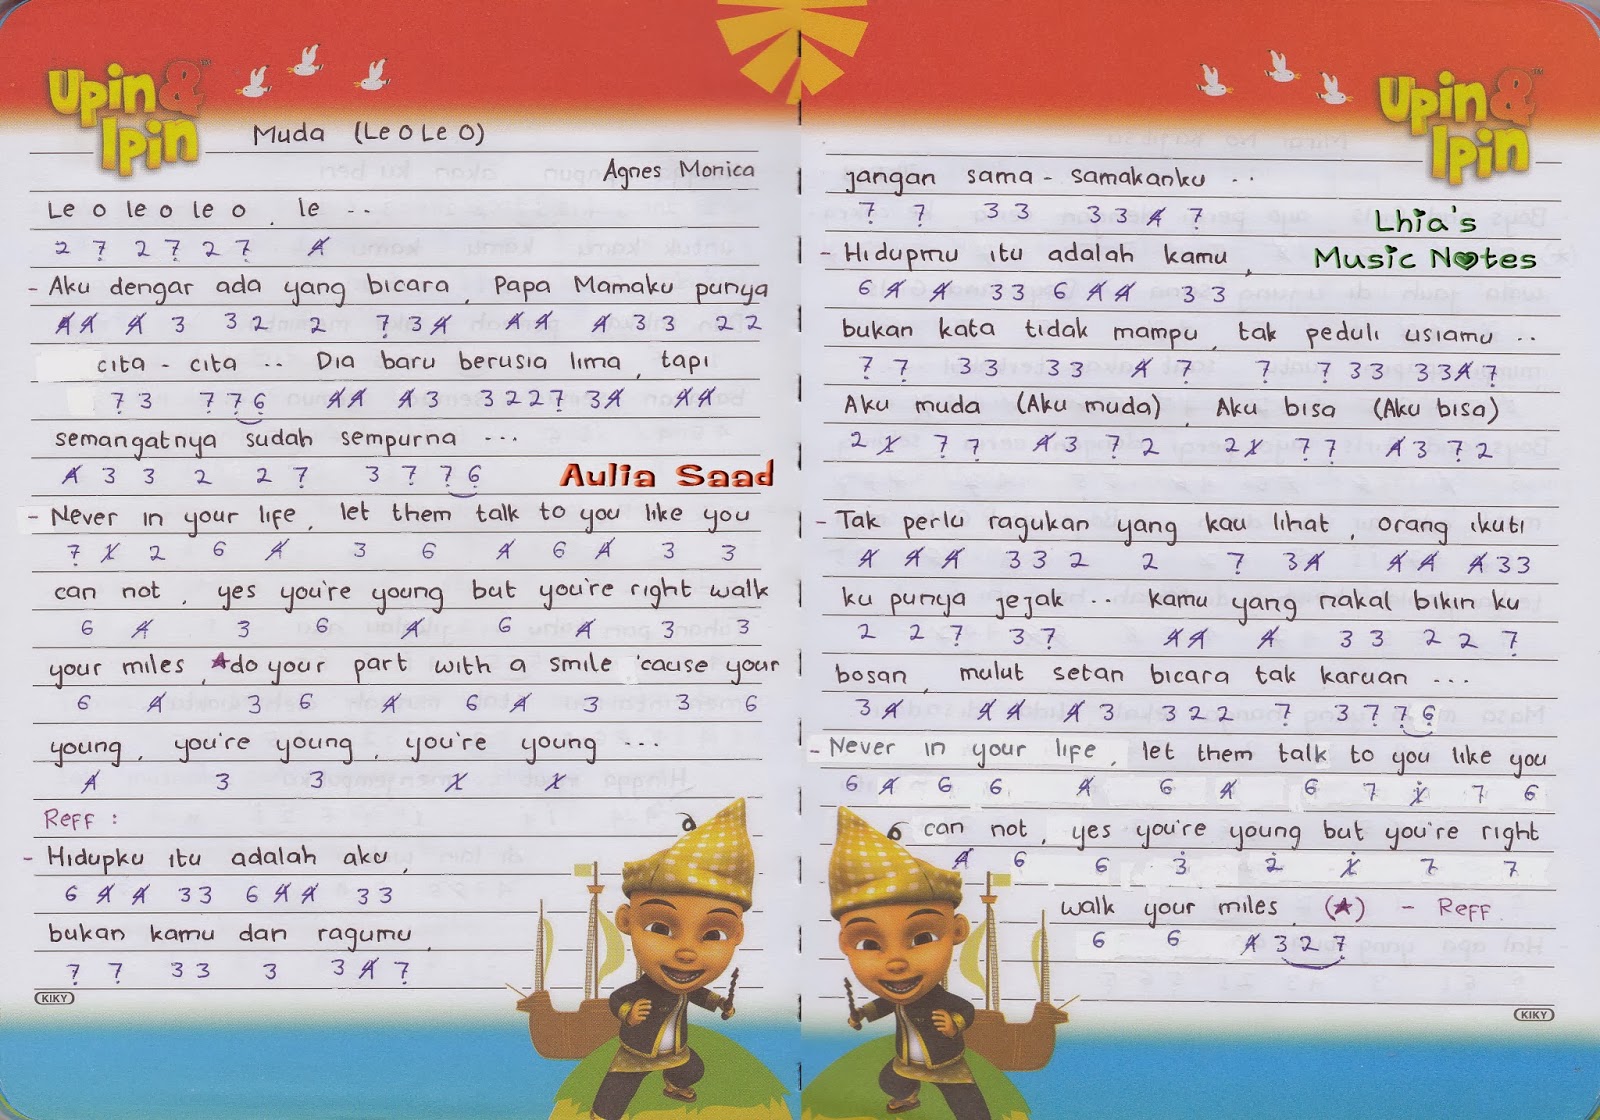 Upin & Ipin
Muda (Le O Le O)
Agnes Monica
Le o le o le o, le ..
2 7̣ 2 7̣ 2 7̣ 4̸
- Aku dengar ada yang bicara, Papa Mamaku punya
4̸ 4̸ 4̸ 3 3 2 2 7̣ 3 4̸ 4̸ 4̸ 4̸ 3 3 2 2
cita - cita .. Dia baru berusia lima, tapi
7̣ 3 7̣ 7̣ 6̣ 4̸ 4̸ 4̸ 3 3 2 2 7̣ 3 4̸ 4̸ 4̸
semangatnya sudah sempurna ...
4̸ 3 3 2 2 7̣ 3 7̣ 7̣ 6̣
Aulia Saad
- Never in your life, let them talk to you like you
7̣ 1̸ 2 6 4̸ 3 6 4̸ 6 4̸ 3 3
can not, yes you're young but you're right walk
6 4̸ 3 6 4̸ 6 4̸ 3 3
your miles, ★do your part with a smile 'cause your
6 4̸ 3 6 4̸ 6 4̸ 3 3 6
young, you're young, you're young ...
4̸ 3 3 1̸ 1̸
Reff :
- Hidupku itu adalah aku,
6 4̸ 4̸ 3 3 6 4̸ 4̸ 3 3
bukan kamu dan ragumu,
7̣ 7̣ 3 3 3 3 4̸ 7̣
KIKY
Upin & Ipin
jangan sama - samakanku ..
7̣ 7̣ 3 3 3 3 4̸ 7̣
Lhia's
Music Notes
- Hidupmu itu adalah kamu,
6 4̸ 4̸ 3 3 6 4̸ 4̸ 3 3
bukan kata tidak mampu, tak peduli usiamu ..
7̣ 7̣ 3 3 3 3 4̸ 7̣ 7̣ 7̣ 3 3 3 3 4̸ 7̣
Aku muda (Aku muda), Aku bisa (Aku bisa)
2 1̸ 7̣ 7̣ 4̸ 3 7̣ 2 2 1̸ 7̣ 7̣ 4̸ 3 7̣ 2
- Tak perlu ragukan yang kau lihat, orang ikuti
4̸ 4̸ 4̸ 3 3 2 2 7̣ 3 4̸ 4̸ 4̸ 4̸ 3 3
ku punya jejak .. kamu yang nakal bikin ku
2 2 7̣ 3 7̣ 4̸ 4̸ 4̸ 3 3 2 2 7̣
bosan, mulut setan bicara tak karuan ...
3 4̸ 4̸ 4̸ 4̸ 3 3 2 2 7̣ 3 7̣ 7̣ 6̣
- Never in your life, let them talk to you like you
6 4̸ 6 6 4̸ 6 4̸ 6 7 1̸̇ 7 6
can not, yes you're young but you're right
4̸ 6 6 3̇ 2̇ 1̸̇ 7 7
walk your miles, (★) - Reff
6 6 4̸ 3 2 7̣
KIKY